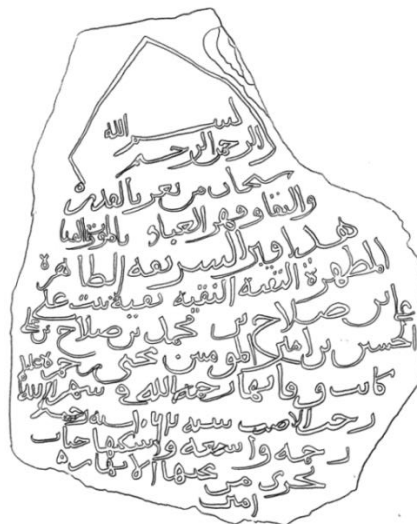 بسم الله
الرحمن الرحيم
سبحان من تعزز بالقدرة
والبقا وقهر العباد بالموت والفنا
هذا قبر الشريفه الطاهرة
المطهرة التقية النقية تقية بنت علي
ابن صلاح بن محمد بن صلاح بن
الحسن بن امير المومنين يحيى
كانت وفاتها رحمها الله في شهر الله
رجب الاصب سنه
رحمه واسعه واسكنها جنات
تجري من تحتها الانهار
امين